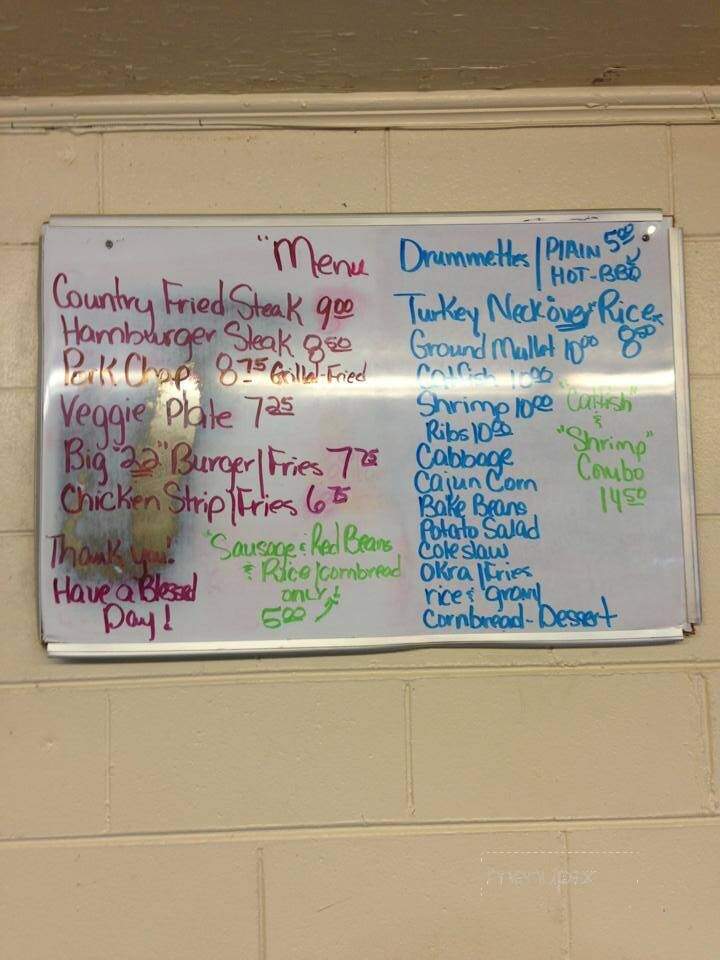 "Menu
Country Fried Steak 9.00
Hamburger Steak 8.50
Pork Chop 8.75 Grilled-Fried
Veggie Plate 7.25
Big "22" Burger | Fries 7.75
Chicken Strip | Fries 6.75
Thank you!
Have a Blessed
Day!
"Sausage & Red Beans
& Rice / cornbread
only!
5.00
Drummettes | PlAIN 5.00
HOT-BBQ
Turkey Neck over Rice
8.50
Ground Mullet 10.00
Catfish 10.00
Shrimp 10.00
Ribs 10.00
Cabbage
Cajun Corn
Bake Beans
Potato Salad
Coleslaw
Okra | Fries
rice & gravy
Cornbread-Dessert
"Catfish"
&
"Shrimp"
Combo
14.50
menupix